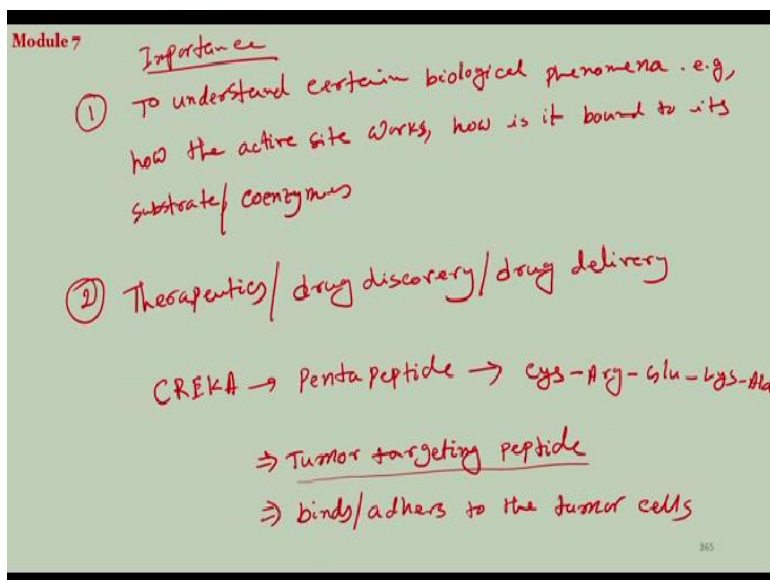 Module 7
Importance
① To understand certain biological phenomena. e.g,
how the active site works, how is it bound to its
substrate/ coenzymes
② Therapeutics/ drug discovery/drug delivery
CREKA → Penta peptide → Cys-Arg-Glu-Lys-Ala
⇒ Tumor targeting peptide
⇒ binds/adhers to the tumor cells
365